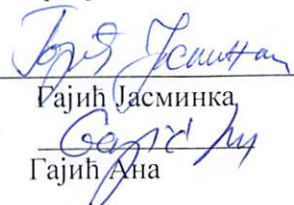 Гајић Јасминка
Гајић Јасминка
Гајић Ана